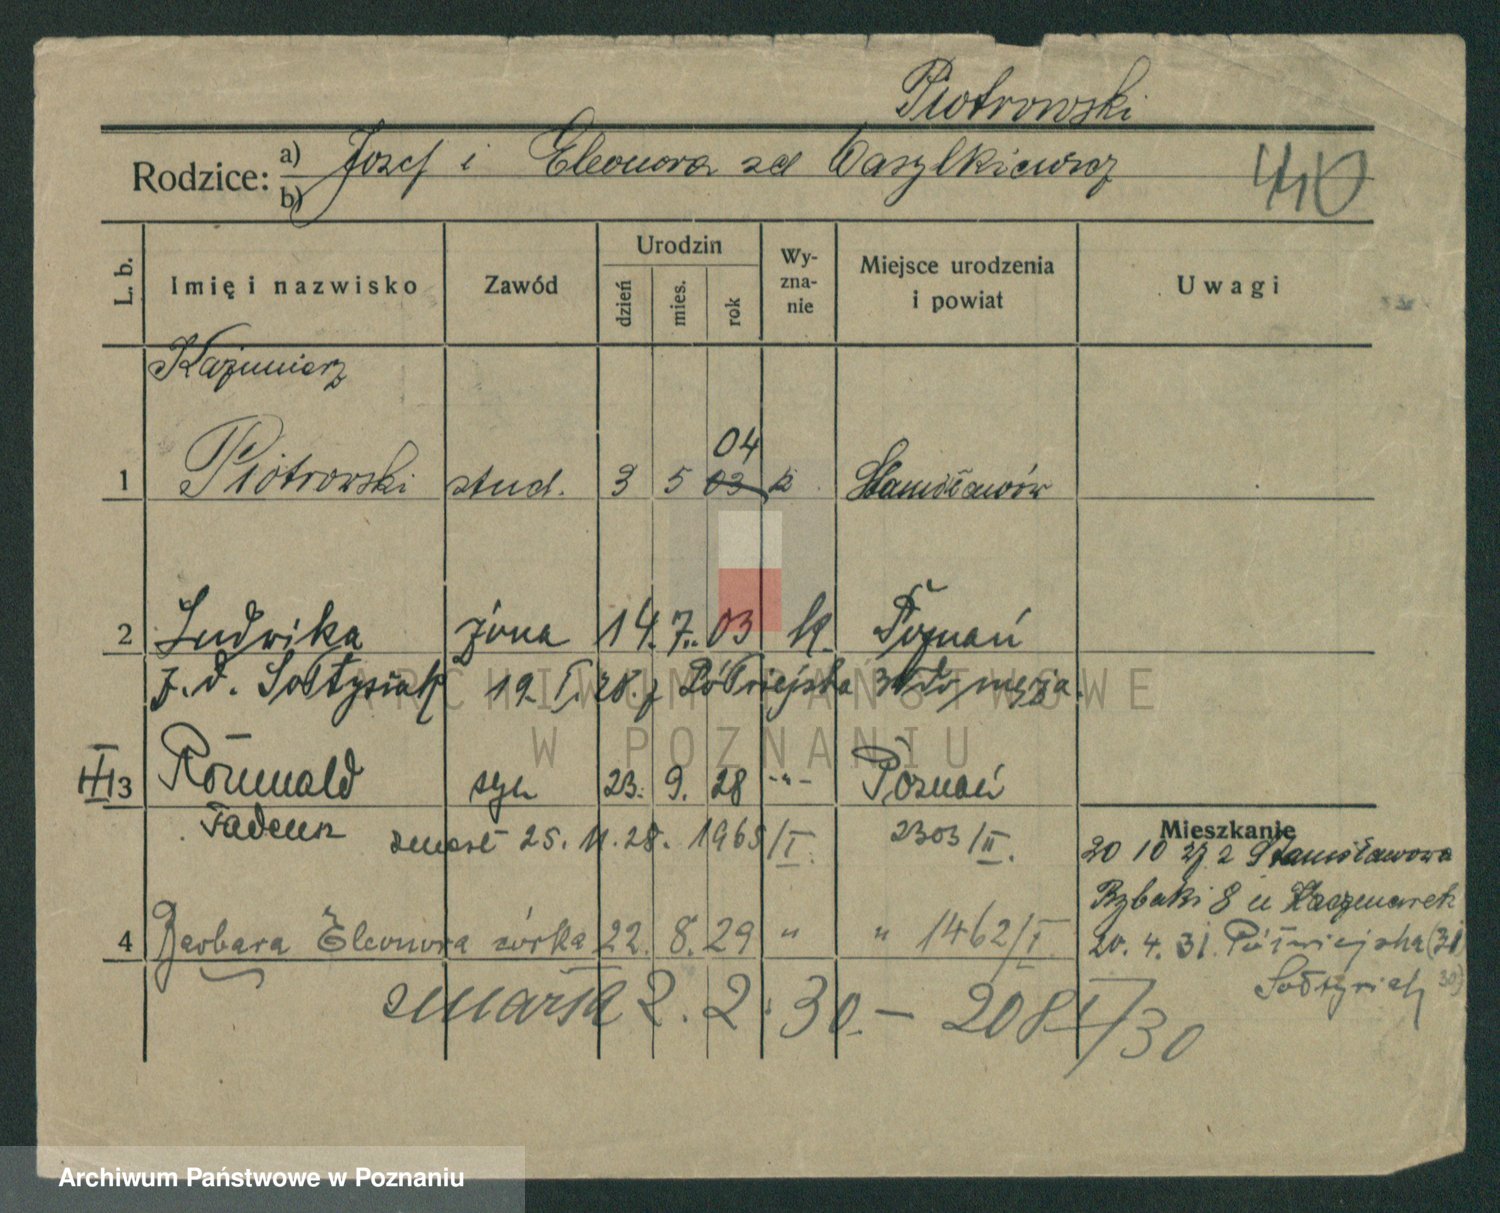 Piotrowski
Rodzice: a) Józef i Eleonora zd Wasylkiewicz
b)
440
L. b. Imię i nazwisko Zawód Urodzin dzień mies. rok Wyznanie Miejsce urodzenia i powiat Uwagi
Kazimierz
04
1 Piotrowski stud. 3 5 03 k Stanisławów
2 Ludwika żona 14. 7. 03 k. Poznań
z. d. Sołtysiak 19. I. 28. z Półwiejska do męża.
3 Romuald syn 23. 9. 28 -"- Poznań
Tadeusz zmarł 25. 11. 28. 1965/I. 2303/II.
Mieszkanie
20 10 27 2 Stanisławowa
Rybaki 8 u Kaczmarek
4 Barbara Eleonora córka 22. 8. 29 " " 1462/I.
20. 4. 31. Półwiejska (31
Sołtysiak 30)
zmarła 2. 2. 30. - 208 I/30
ARCHIWUM PAŃSTWOWE
W POZNANIU
Archiwum Państwowe w Poznaniu